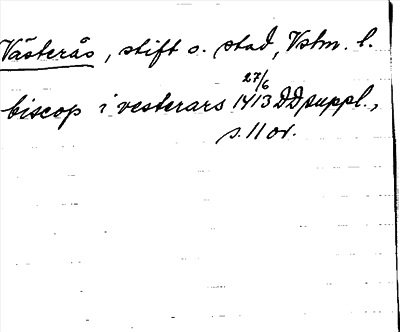 Västerås, stift o. stad, Vstm. l.
biscop i vesterars 27/6 1413 DD suppl.,
s. 11 or.